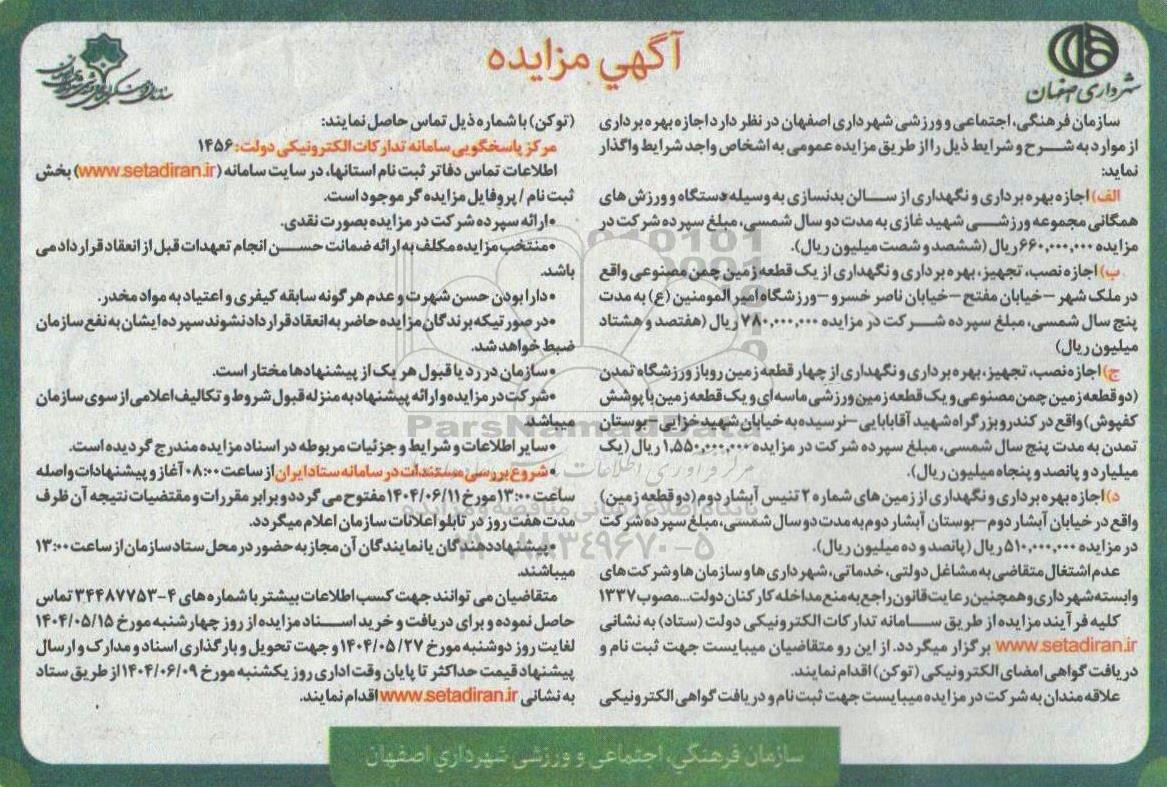 آگهي مزايده
شهرداری اصفهان
سازمان فرهنگی، اجتماعی و ورزشی شهرداری اصفهان در نظر دارد اجازه بهره برداری
از موارد به شرح و شرایط ذیل را از طریق مزایده عمومی به اشخاص واجد شرایط واگذار
نماید:
الف) اجازه بهره برداری و نگهداری از سالن بدنسازی به وسیله دستگاه و ورزش های
همگانی مجموعه ورزشی شهید غازی به مدت دو سال شمسی، مبلغ سپرده شرکت در
مزایده ۶۶۰,۰۰۰,۰۰۰ ریال (ششصد و شصت میلیون ریال).
ب) اجازه نصب، تجهیز، بهره برداری و نگهداری از یک قطعه زمین چمن مصنوعی واقع
در ملک شهر – خیابان مفتح – خیابان ناصر خسرو – ورزشگاه امیر المومنین (ع) به مدت
پنج سال شمسی، مبلغ سپرده شرکت در مزایده ۷۸۰,۰۰۰,۰۰۰ ریال (هفتصد و هشتاد
میلیون ریال)
ج) اجازه نصب، تجهیز، بهره برداری و نگهداری از چهار قطعه زمین روباز ورزشگاه تمدن
(دو قطعه زمین چمن مصنوعی و یک قطعه زمین ورزشی ماسه ای و یک قطعه زمین با پوشش
کفپوش) واقع در کندرو بزرگراه شهید آقابابایی – نرسیده به خیابان شهید خزایی – بوستان
تمدن به مدت پنج سال شمسی، مبلغ سپرده شرکت در مزایده ۱,۵۵۰,۰۰۰,۰۰۰ ریال (یک
میلیارد و پانصد و پنجاه میلیون ریال).
د) اجازه بهره برداری و نگهداری از زمین های شماره ۲ تنیس آبشار دوم (دو قطعه زمین)
واقع در خیابان آبشار دوم – بوستان آبشار دوم به مدت دو سال شمسی، مبلغ سپرده شرکت
در مزایده ۵۱۰,۰۰۰,۰۰۰ ریال (پانصد و ده میلیون ریال).
عدم اشتغال متقاضی به مشاغل دولتی، خدماتی، شهرداری ها و سازمان ها و شرکت های
وابسته شهرداری و همچنین رعایت قانون راجع به منع مداخله کارکنان دولت...مصوب ۱۳۳۷
کلیه فرآیند مزایده از طریق سامانه تدارکات الکترونیکی دولت (ستاد) به نشانی
www.setadiran.ir برگزار میگردد. از این رو متقاضیان میبایست جهت ثبت نام و
دریافت گواهی امضای الکترونیکی (توکن) اقدام نمایند.
علاقه مندان به شرکت در مزایده میبایست جهت ثبت نام و دریافت گواهی الکترونیکی
(توکن) با شماره ذیل تماس حاصل نمایند:
مرکز پاسخگویی سامانه تدارکات الکترونیکی دولت: ۱۴۵۶
اطلاعات تماس دفاتر ثبت نام استانها، در سایت سامانه (www.setadiran.ir) بخش
ثبت نام / پروفایل مزایده گر موجود است.
•ارائه سپرده شرکت در مزایده بصورت نقدی.
•منتخب مزایده مکلف به ارائه ضمانت حسن انجام تعهدات قبل از انعقاد قرارداد می
باشد.
•دارا بودن حسن شهرت و عدم هر گونه سابقه کیفری و اعتیاد به مواد مخدر.
•در صورتیکه برندگان مزایده حاضر به انعقاد قرارداد نشوند سپرده ایشان به نفع سازمان
ضبط خواهد شد.
•سازمان در رد یا قبول هر یک از پیشنهادها مختار است.
•شرکت در مزایده و ارائه پیشنهاد به منزله قبول شروط و تکالیف اعلامی از سوی سازمان
میباشد.
•سایر اطلاعات و شرایط و جزئیات مربوطه در اسناد مزایده مندرج گردیده است.
•شروع بررسی مستندات در سامانه ستاد ایران از ساعت ۰۸:۰۰ آغاز و پیشنهادات واصله
ساعت ۱۳:۰۰ مورخ ۱۴۰۴/۰۶/۱۱ مفتوح می گردد و برابر مقررات و مقتضیات نتیجه آن ظرف
مدت هفت روز در تابلو اعلانات سازمان اعلام میگردد.
•پیشنهاد دهندگان یا نمایندگان آن مجاز به حضور در محل ستاد سازمان از ساعت ۱۳:۰۰
میباشند.
متقاضیان می توانند جهت کسب اطلاعات بیشتر با شماره های ۴-۳۴۴۸۷۷۵۳ تماس
حاصل نموده و برای دریافت و خرید اسناد مزایده از روز چهارشنبه مورخ ۱۴۰۴/۰۵/۱۵
لغایت روز دوشنبه مورخ ۱۴۰۴/۰۵/۲۷ و جهت تحویل و بارگذاری اسناد و مدارک و ارسال
پیشنهاد قیمت حداکثر تا پایان وقت اداری روز یکشنبه مورخ ۱۴۰۴/۰۶/۰۹ از طریق ستاد
به نشانی www.setadiran.ir اقدام نمایند.
ParsNamadData
۰۲۱-۸۸۳۴۹۶۷۰-۵
سازمان فرهنگي، اجتماعی و ورزشی شهرداري اصفهان